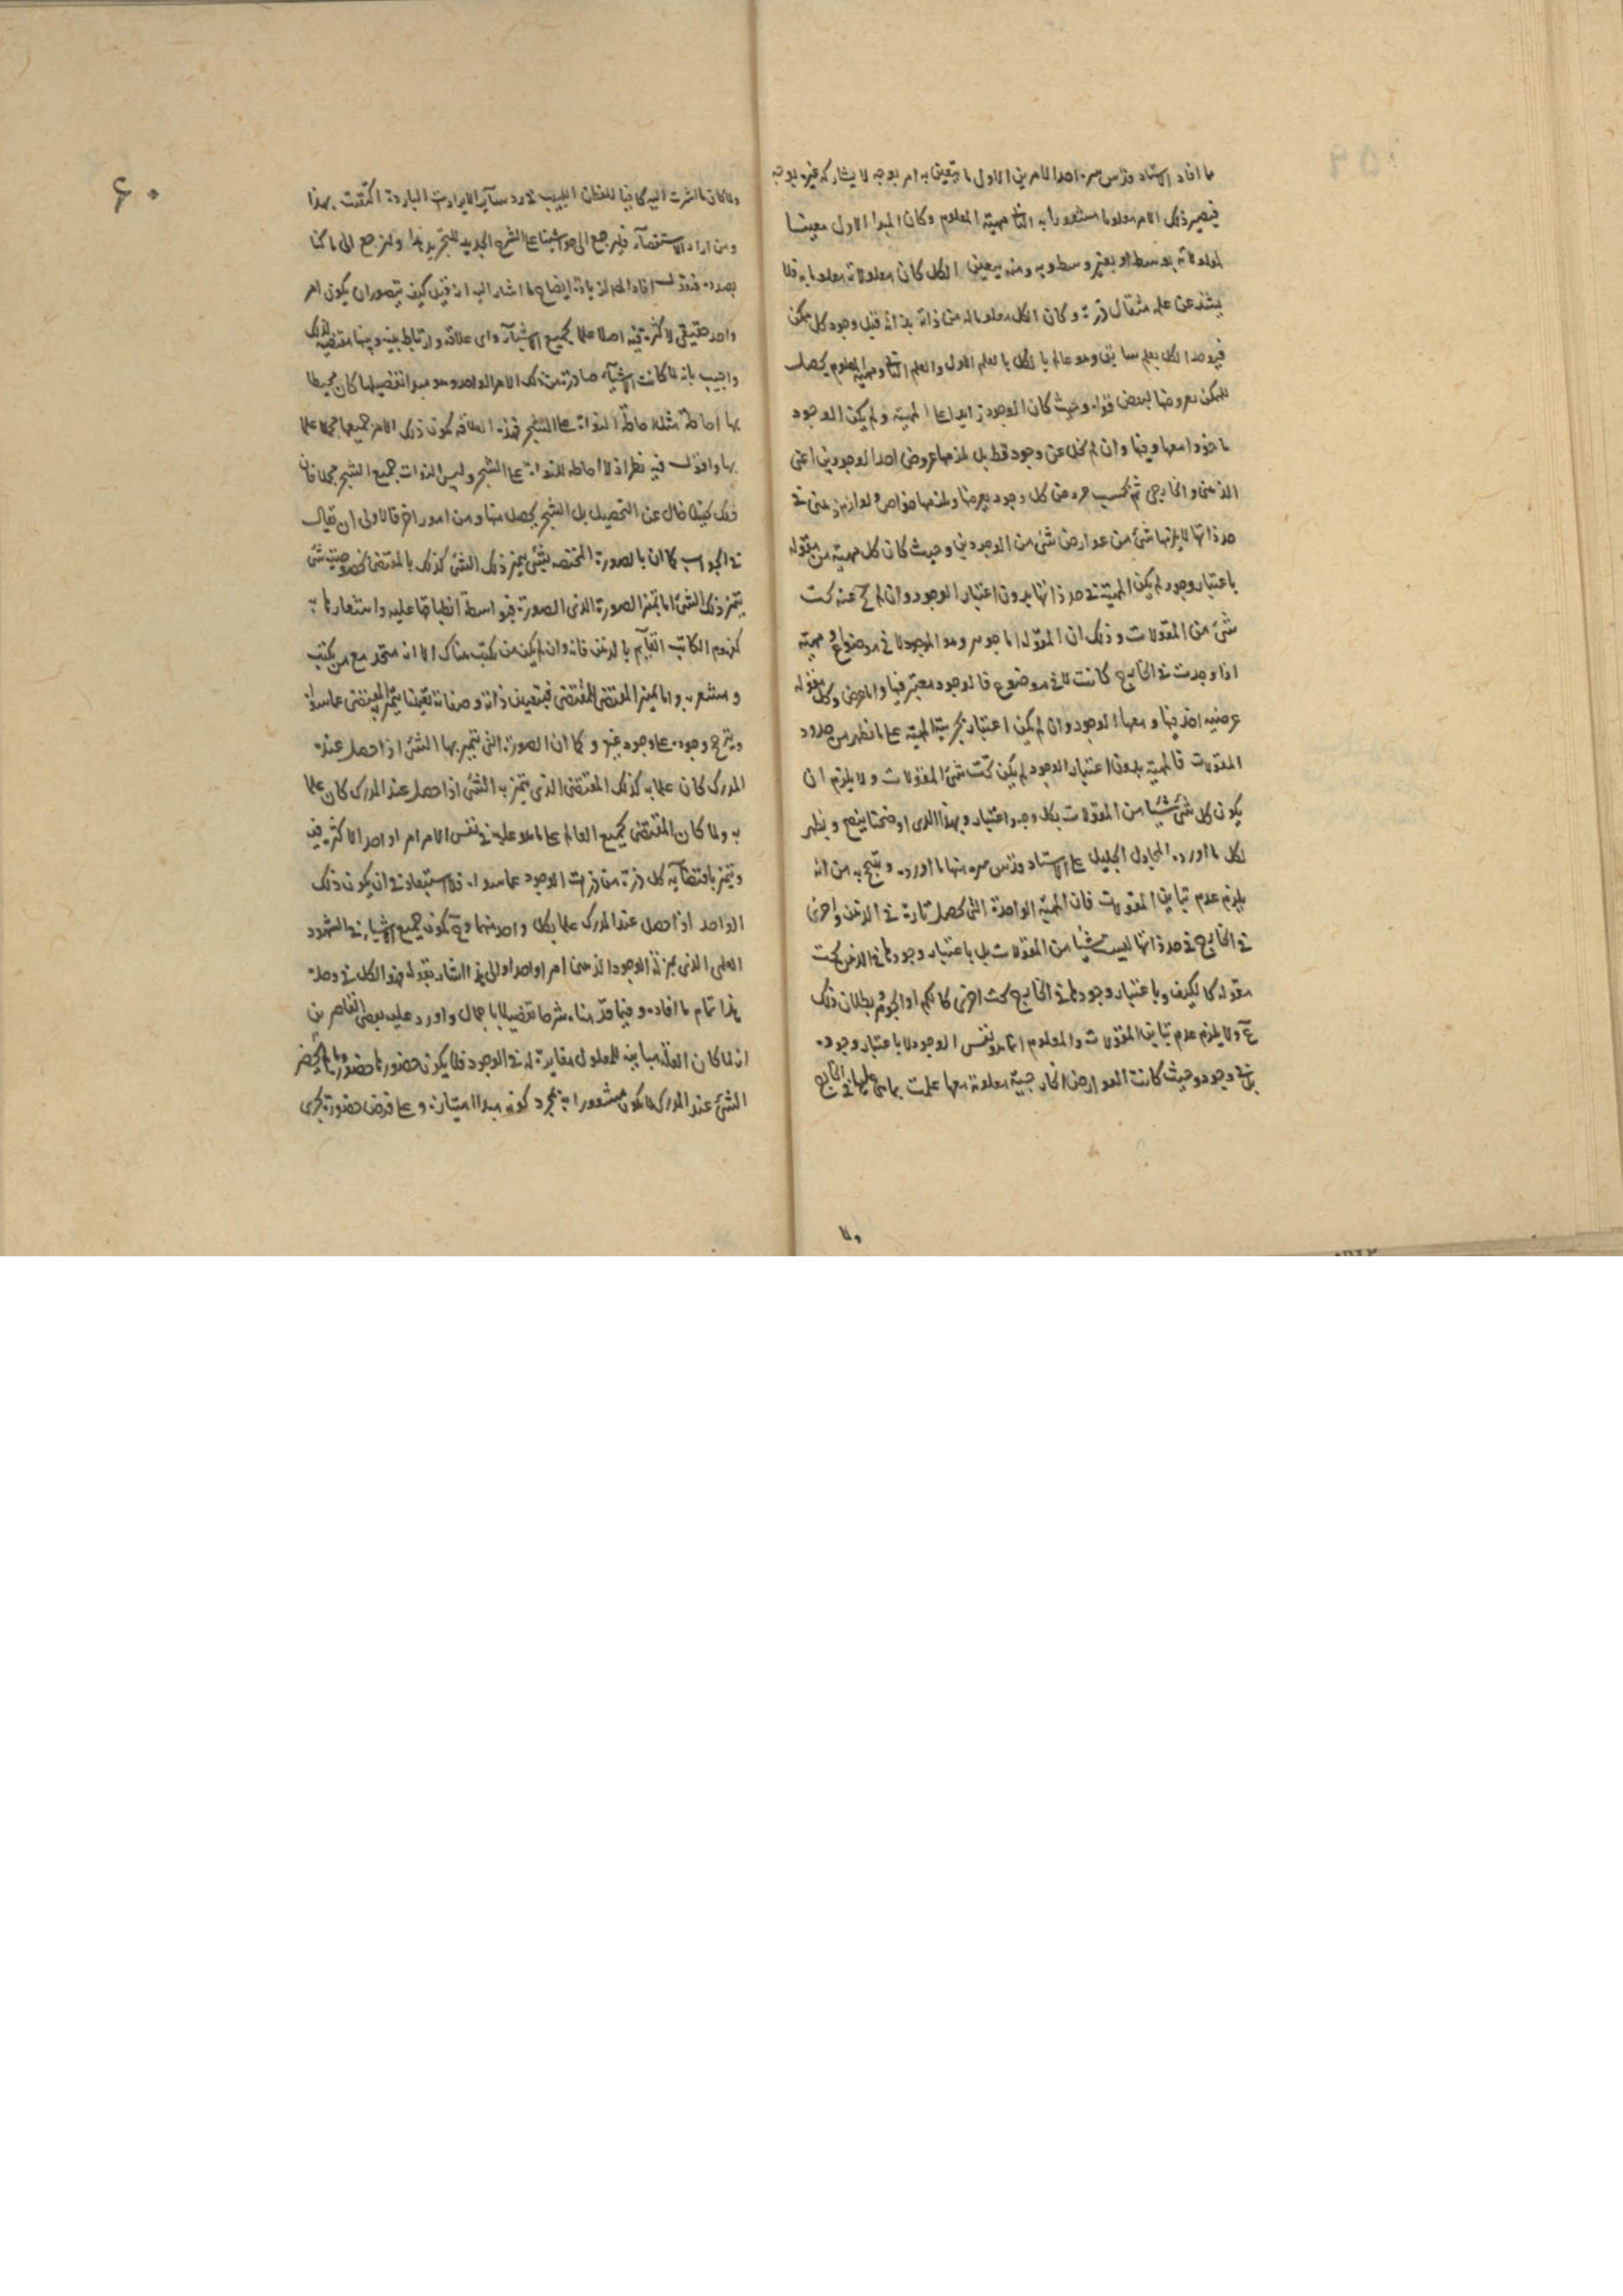 ما افاد الاستاد قدس سره احد الامرين الاول ما يتعين به امر بوجه لا يشاركه غيره بوجه
فيصير ذلك الامر معلوما مشعورا به الثانى مهية المعلوم وكان المبدا الاول معينا
لمعلولاته بوسط او بغير وسط وبه ومنه يتعين الكل كان معلولاته معلوما به فلا
يشذ عن علمه مثقال ذرة وكان الكل معلوما له من ذاته بذاته قبل وجود كل ممكن
فيوجد الكل بعلم سابق وهو عالم بالكل بالعلم الاول والعلم الثانى ومهية المعلوم يحصل
للممكن بعروضها لبعض قواه وحيث كان الوجود زايدا على المهية ولم يكن الوجود
ماخوذا معها وفيها وان لم يخل عن وجود قط بل لزمها عروض احد الوجودين اعنى
الذهنى والخارجى ثم بحسب عروض كل وجود يعرضها ويلزمها خواص ولوازم فهى فى
حد ذاتها لا يلزمها شئ من عوارض شئ من الوجودين وحيث كان كل مهية من مقولة
باعتبار وجود لم يكن المهية فى حد ذاتها بدون اعتبار الوجود وان لم يخ عنه تحت
شئ من المقولات وذلك ان المقولة اما جوهر وهو الموجود لا فى موضوع او مهية
اذا وجدت فى الخارج كانت لا فى موضوع فالوجود معتبر فيها واما عرض وكل مقولة
عرضيه اخذ فيها ومعها الوجود وان لم يكن اعتبار بجزئية المهية على ما نظهر من حدود
المقولات فالمهية بدون اعتبار الوجود لم يكن تحت شئ المقولات ولا يلزم ان
يكون كل شئ شيئا من المقولات بكل وجه واعتبار وبهذا الذى اوضحنا يتضح ويظهر
لكل ما اورده المجادل الجليل على الاستاد قدس سره منها ما اورده وتبجح به من انه
يلزم عدم تباين المقولات فان المهية الواحدة التى تحصل تارة فى الذهن واخرى
فى الخارج فى حد ذاتها ليست شيئا من المقولات بل باعتبار وجودها فى الذهن تحت
مقولة كالكيف وباعتبار وجودها فى الخارج تحت اخرى كالكم او الجوهر وبطلان ذلك
مح ولا يلزم عدم تباين المقولات والمعلوم انما هو نفس الوجود لا باعتبار وجوده
بل فى وجود وحيث كانت العوارض الخارجية معلومة معها علمت بما هى عليها فى الخارج
ولما
٦٠
ولما كان ما اشرت اليه كافيا للفطن اللبيب فى رد سآير الايرادات الباردة اكتفيت بهذا
ومن اراد الاستقصآء فليرجع الى حواشينا على الشرح الجديد للتجريد هذا ولنرجع الى ما كنا
بصدده فنقول افاد العم لزيادة ايضاح ما اشار اليه انه قيل كيف يتصور ان يكون امر
واحد حقيقى لا كثرة فيه اصلا علما بجميع الاشيآء واى علاقة وارتباط بينه وبينها مقتضيه لذلك
واجيب بانه لما كانت الاشيآء صادرة من ذلك الامر الواحد وهو مبدا تفصيلها كان محيطا
بها احاطة مثل احاطة النواة على الشجر فبهذه العلاقة يكون ذلك الامر جميعها مجملا علما
بها واقول فيه نظر اذ لا احاطه للنواة على الشجر وليس النواة جميع الشجر مجملا فان
ذلك كلام خال عن التحصيل بل الشجر يحصل منها ومن امور اخر فالاولى ان يقال
فى الجواب كما ان بالصورة المختصه بشئ يتميز ذلك الشئ كذلك بالمقتضى لخصوصية شئ
يتميز ذلك الشئ اما تميز الصورة لذى الصورة فبواسطة انطباقها عليه واشعارها به
كمفهوم الكاتب القآيم بالذهن فانه وان لم يكن من يكتب هناك الا انه متحد مع من يكتب
ومشعر به واما تميز المقتضى للمقتضى فبتعيين ذاته وصفاته تعيينا يتميز المقتضى عما سواه
ويترجح وجوده على وجود غيره وكما ان الصورة التى يتميز بها الشئ اذا حصل عند
المدرك كان علما به كذلك المقتضى الذى يتميز به الشئ اذا حصل عند المدرك كان علما
به ولما كان المقتضى لجميع العالم على ما هو عليه فى نفس الامر امرا واحدا لا كثرة فيه
ويتميز باقتضآيه كل ذرة من ذرات الوجود عما سواه فلا استبعاد فى ان يكون ذلك
الواحد اذا حصل عند المدرك علما بكل واحد منهما وح يكون جميع الاشياء فى الشهود
العلمى الذى بمنزلة الوجود الذهنى امرا واحدا والى هذا اشار بقوله فهو الكل فى وحدة
هذا تمام ما افاده وفيما قدمناه شرحا تفصيلا باجمال واورد عليه بعض القاصرين
انه لما كان العلة مباينه للمعلول مغايرة له فى الوجود فلا يكون حضورها حضوره وما لم يحضر
الشئ عند المدرك لا يكون مشعورا به بمجرد كونه مبدا امتيازه وعلى فرض حضوره يجرى